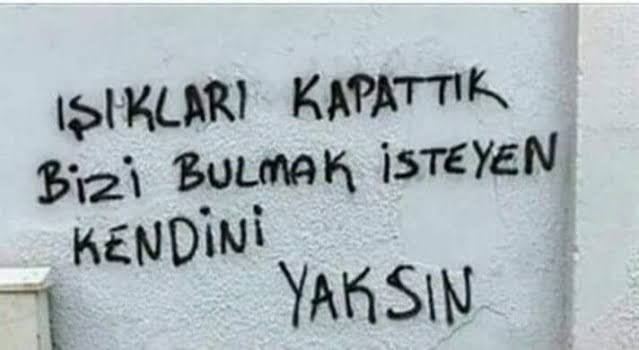 IŞIKLARI KAPATTIK
BiZi BULMAK iSTEYEN
KENDiNi
YAKSIN